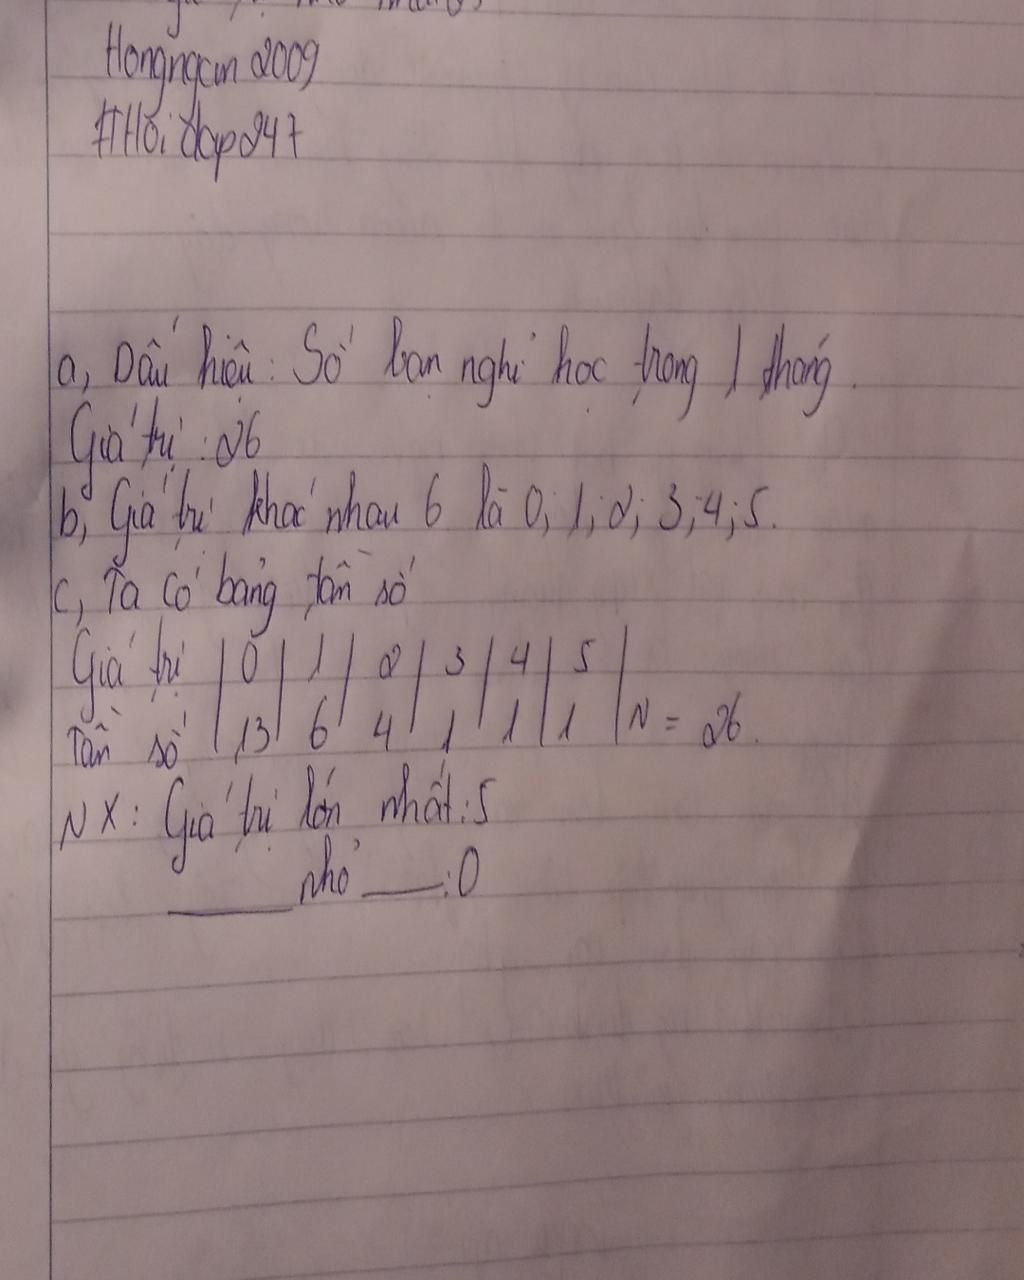 Hongngcm 2009
#Hỏi đáp247
a, Dấu hiệu: Số bạn nghỉ học trong 1 tháng.
Giá trị: 26
b, Giá trị khác nhau 6 là 0; 1; 2; 3; 4; 5.
c, Ta có bảng tần số
Giá trị | 0 | 1 | 2 | 3 | 4 | 5 |
Tần số | 13 | 6 | 4 | 1 | 1 | 1 | N = 26.
NX: Giá trị lớn nhất: 5
____ nhỏ ___: 0